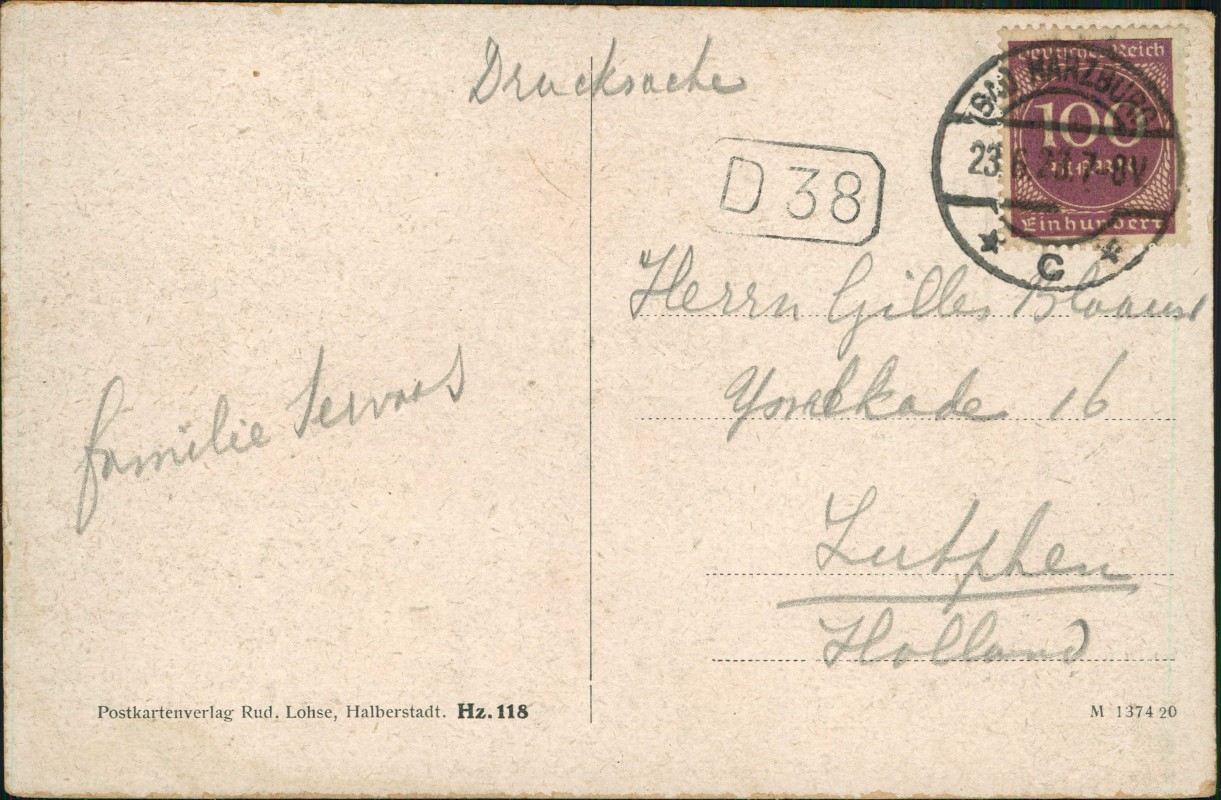 Drucksache
Deutsches Reich
100
Einhundert
BAD HARZBURG
23.6.23.7-8V
* C *
D 38
Herrn Gilles
16
Zutphen
Holland
Familie Servaas
Postkartenverlag Rud. Lohse, Halberstadt. Hz. 118
M 1374 20